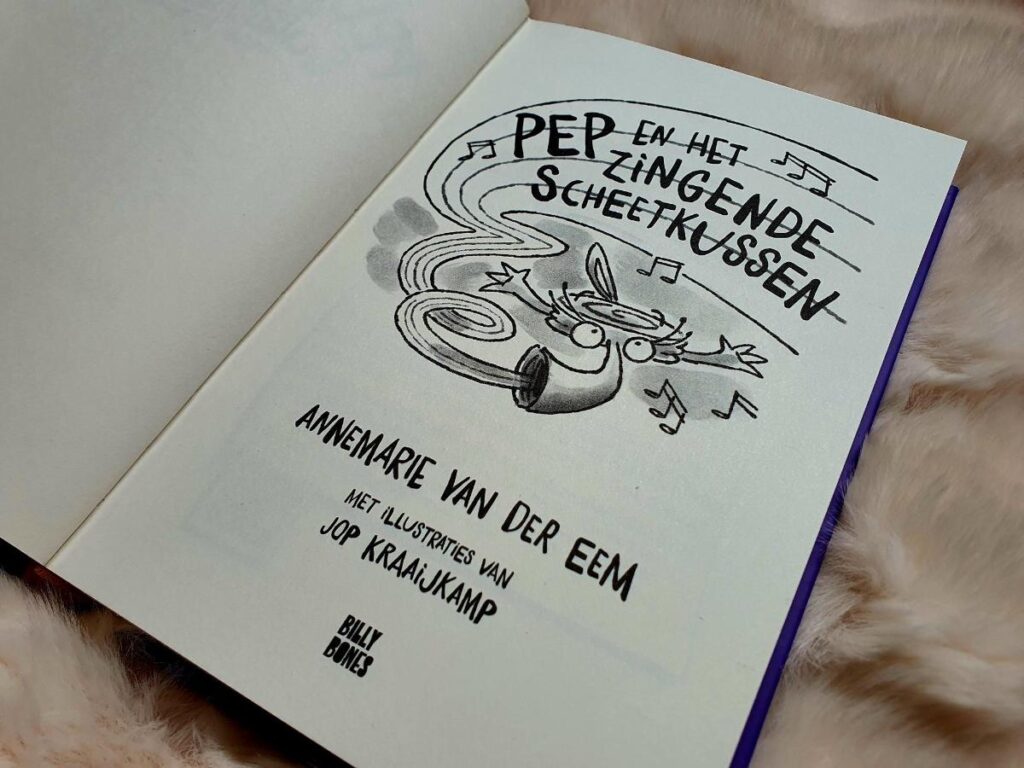 PEP EN HET
ZiNGENDE
SCHEETKUSSEN
ANNEMARIE VAN DER EEM
MET iLLUSTRATiES VAN
JOP KRAAiJKAMP
BILLY
BONES